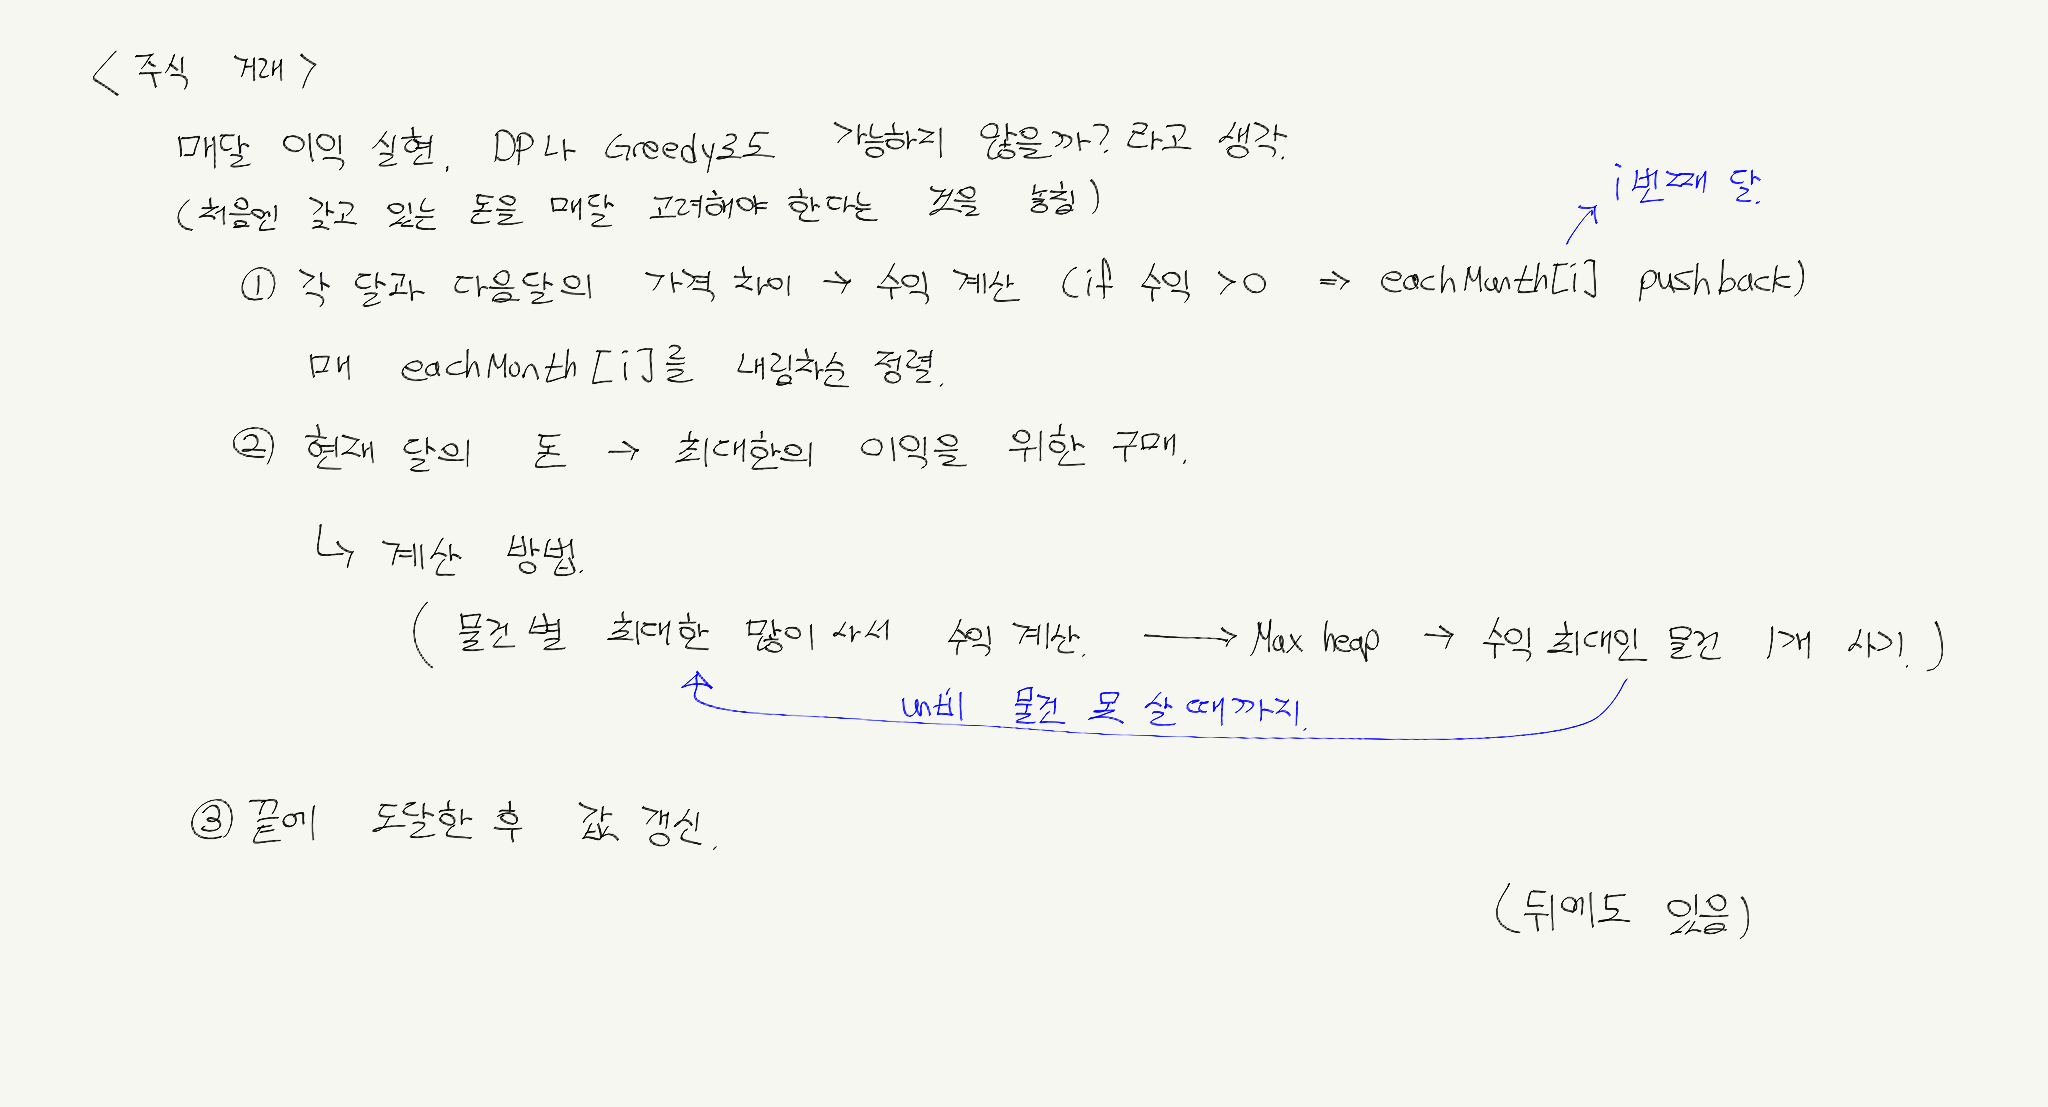 <주식 거래>
매달 이익 실현. DP나 Greedy로도 가능하지 않을까? 라고 생각.
(처음엔 갖고 있는 돈을 매달 고려해야 한다는 것을 놓침)
i번째 달.
① 각 달과 다음달의 가격 차이 → 수익 계산 (if 수익 >0 ⇒ eachMonth[i] pushback)
매 eachMonth[i]를 내림차순 정렬.
② 현재 달의 돈 → 최대한의 이익을 위한 구매.
↳ 계산 방법.
(물건별 최대한 많이 사서 수익 계산. → Max heap → 수익 최대인 물건 1개 사기.)
물건 못 살 때까지.
③ 끝에 도달한 후 값 갱신.
(뒤에도 있음)